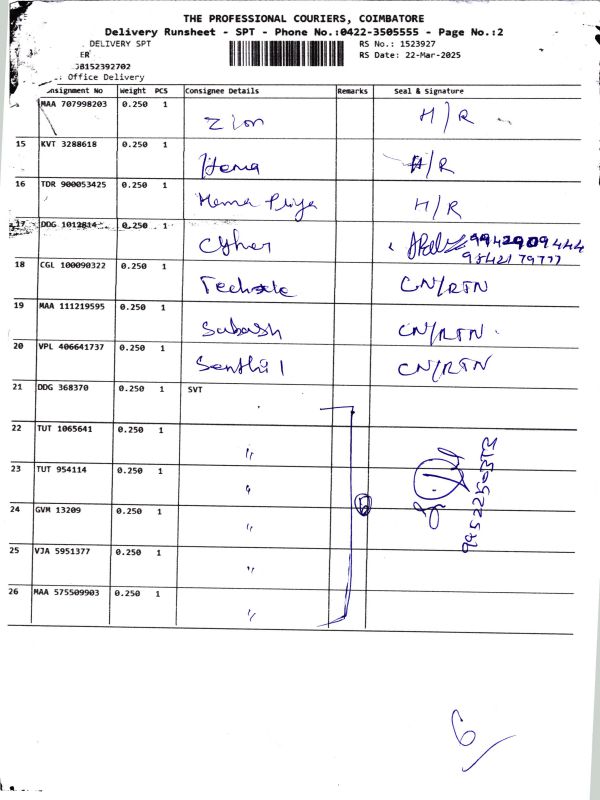 THE PROFESSIONAL COURIERS, COIMBATORE
Delivery Runsheet - SPT - Phone No.:0422-3505555 - Page No.:2
DELIVERY SPT RS No.: 1523927
ER RS Date: 22-Mar-2025
8152392702
: Office Delivery
onsignment No Weight PCS Consignee Details Remarks Seal & Signature
MAA 707998203 0.250 1 Zion H/R
15 KVT 3288618 0.250 1 Hema H/R
16 TDR 900053425 0.250 1 Hema Priya H/R
17 DDG 1012814 0.250 1 9942909444
9842179777
18 CGL 100090322 0.250 1 CN/RTN
19 MAA 111219595 0.250 1 Subash CN/RTN
20 VPL 406641737 0.250 1 Senthil CN/RTN
21 DDG 368370 0.250 1 SVT
22 TUT 1065641 0.250 1 "
23 TUT 954114 0.250 1 "
24 GVM 13209 0.250 1 " 6
25 VJA 5951377 0.250 1 "
26 MAA 575509903 0.250 1 "
6